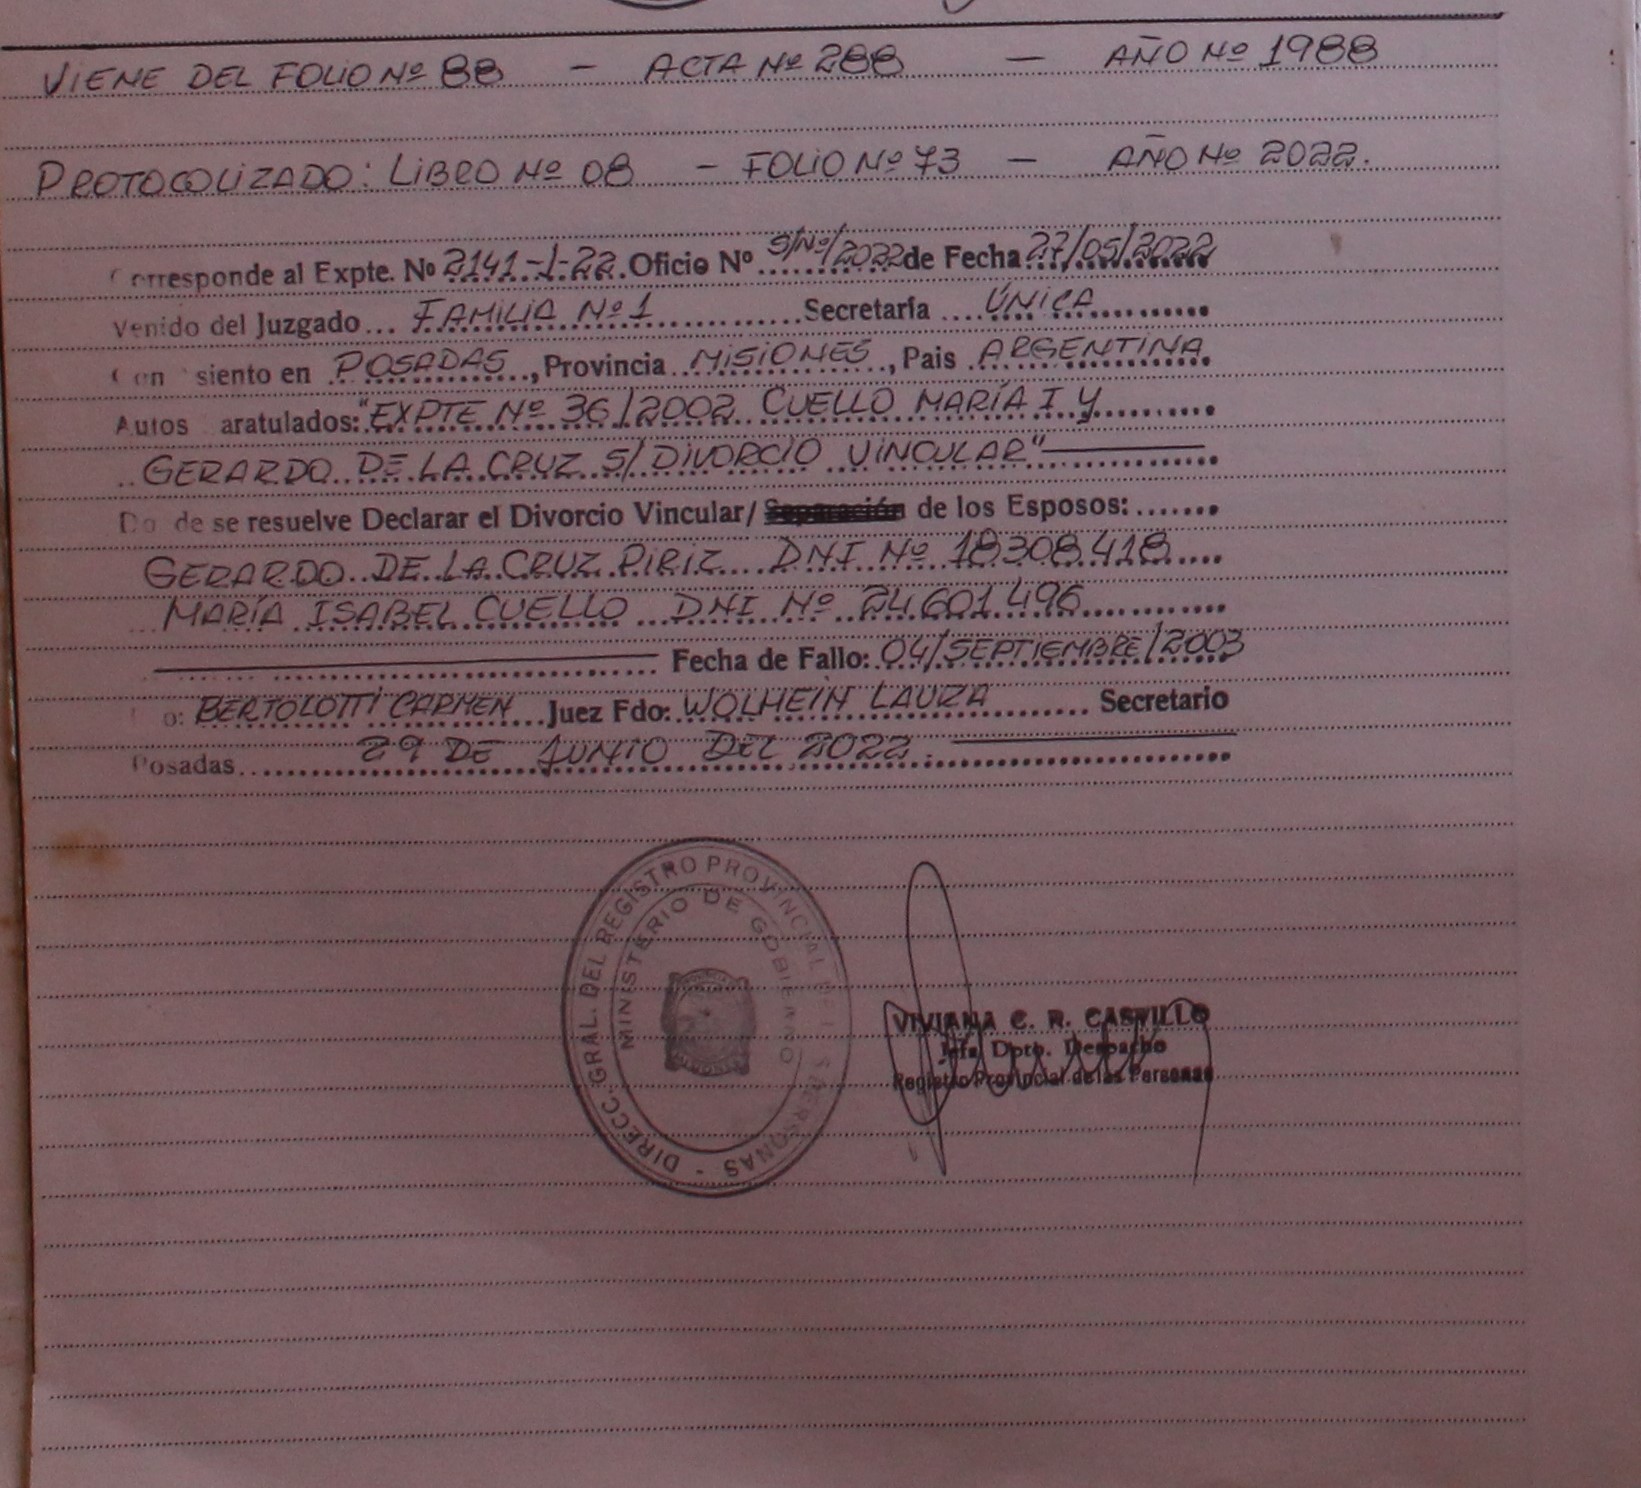 VIENE DEL FOLIO Nº 88 - ACTA Nº 288 - AÑO Nº 1988
PROTOCOLIZADO: LIBRO Nº 08 - FOLIO Nº 73 - AÑO Nº 2022.
Corresponde al Expte. Nº 2141-J-22. Oficio Nº S/Nº/2022 de Fecha 27/05/2022
Venido del Juzgado... FAMILIA Nº 1 ............Secretaría ....ÚNICA..........
Con siento en POSADAS..., Provincia MISIONES, Pais ARGENTINA
Autos aratulados: "EXPTE Nº 36/2002 CUELLO MARÍA I Y..........
GERARDO DE LA CRUZ S/ DIVORCIO VINCULAR"
Do de se resuelve Declarar el Divorcio Vincular/ Separación de los Esposos:.......
GERARDO DE LA CRUZ PIRIZ DNI Nº 18.308.418....
MARÍA ISABEL CUELLO DNI Nº 24.601.496............
Fecha de Fallo: 04/SEPTIEMBRE/2003
o: BERTOLOTTI CARMEN Juez Fdo: WOLHEIN LAURA ........ Secretario
Posadas.......... 29 DE JUNIO DEL 2022.
DIRECC. GRAL. DEL REGISTRO PROVINCIAL DE PERSONAS -
MINISTERIO DE GOBIERNO
VIVIANA C. R. CASTILLO
Jefa Dpto. Despacho
Registro Provincial de las Personas